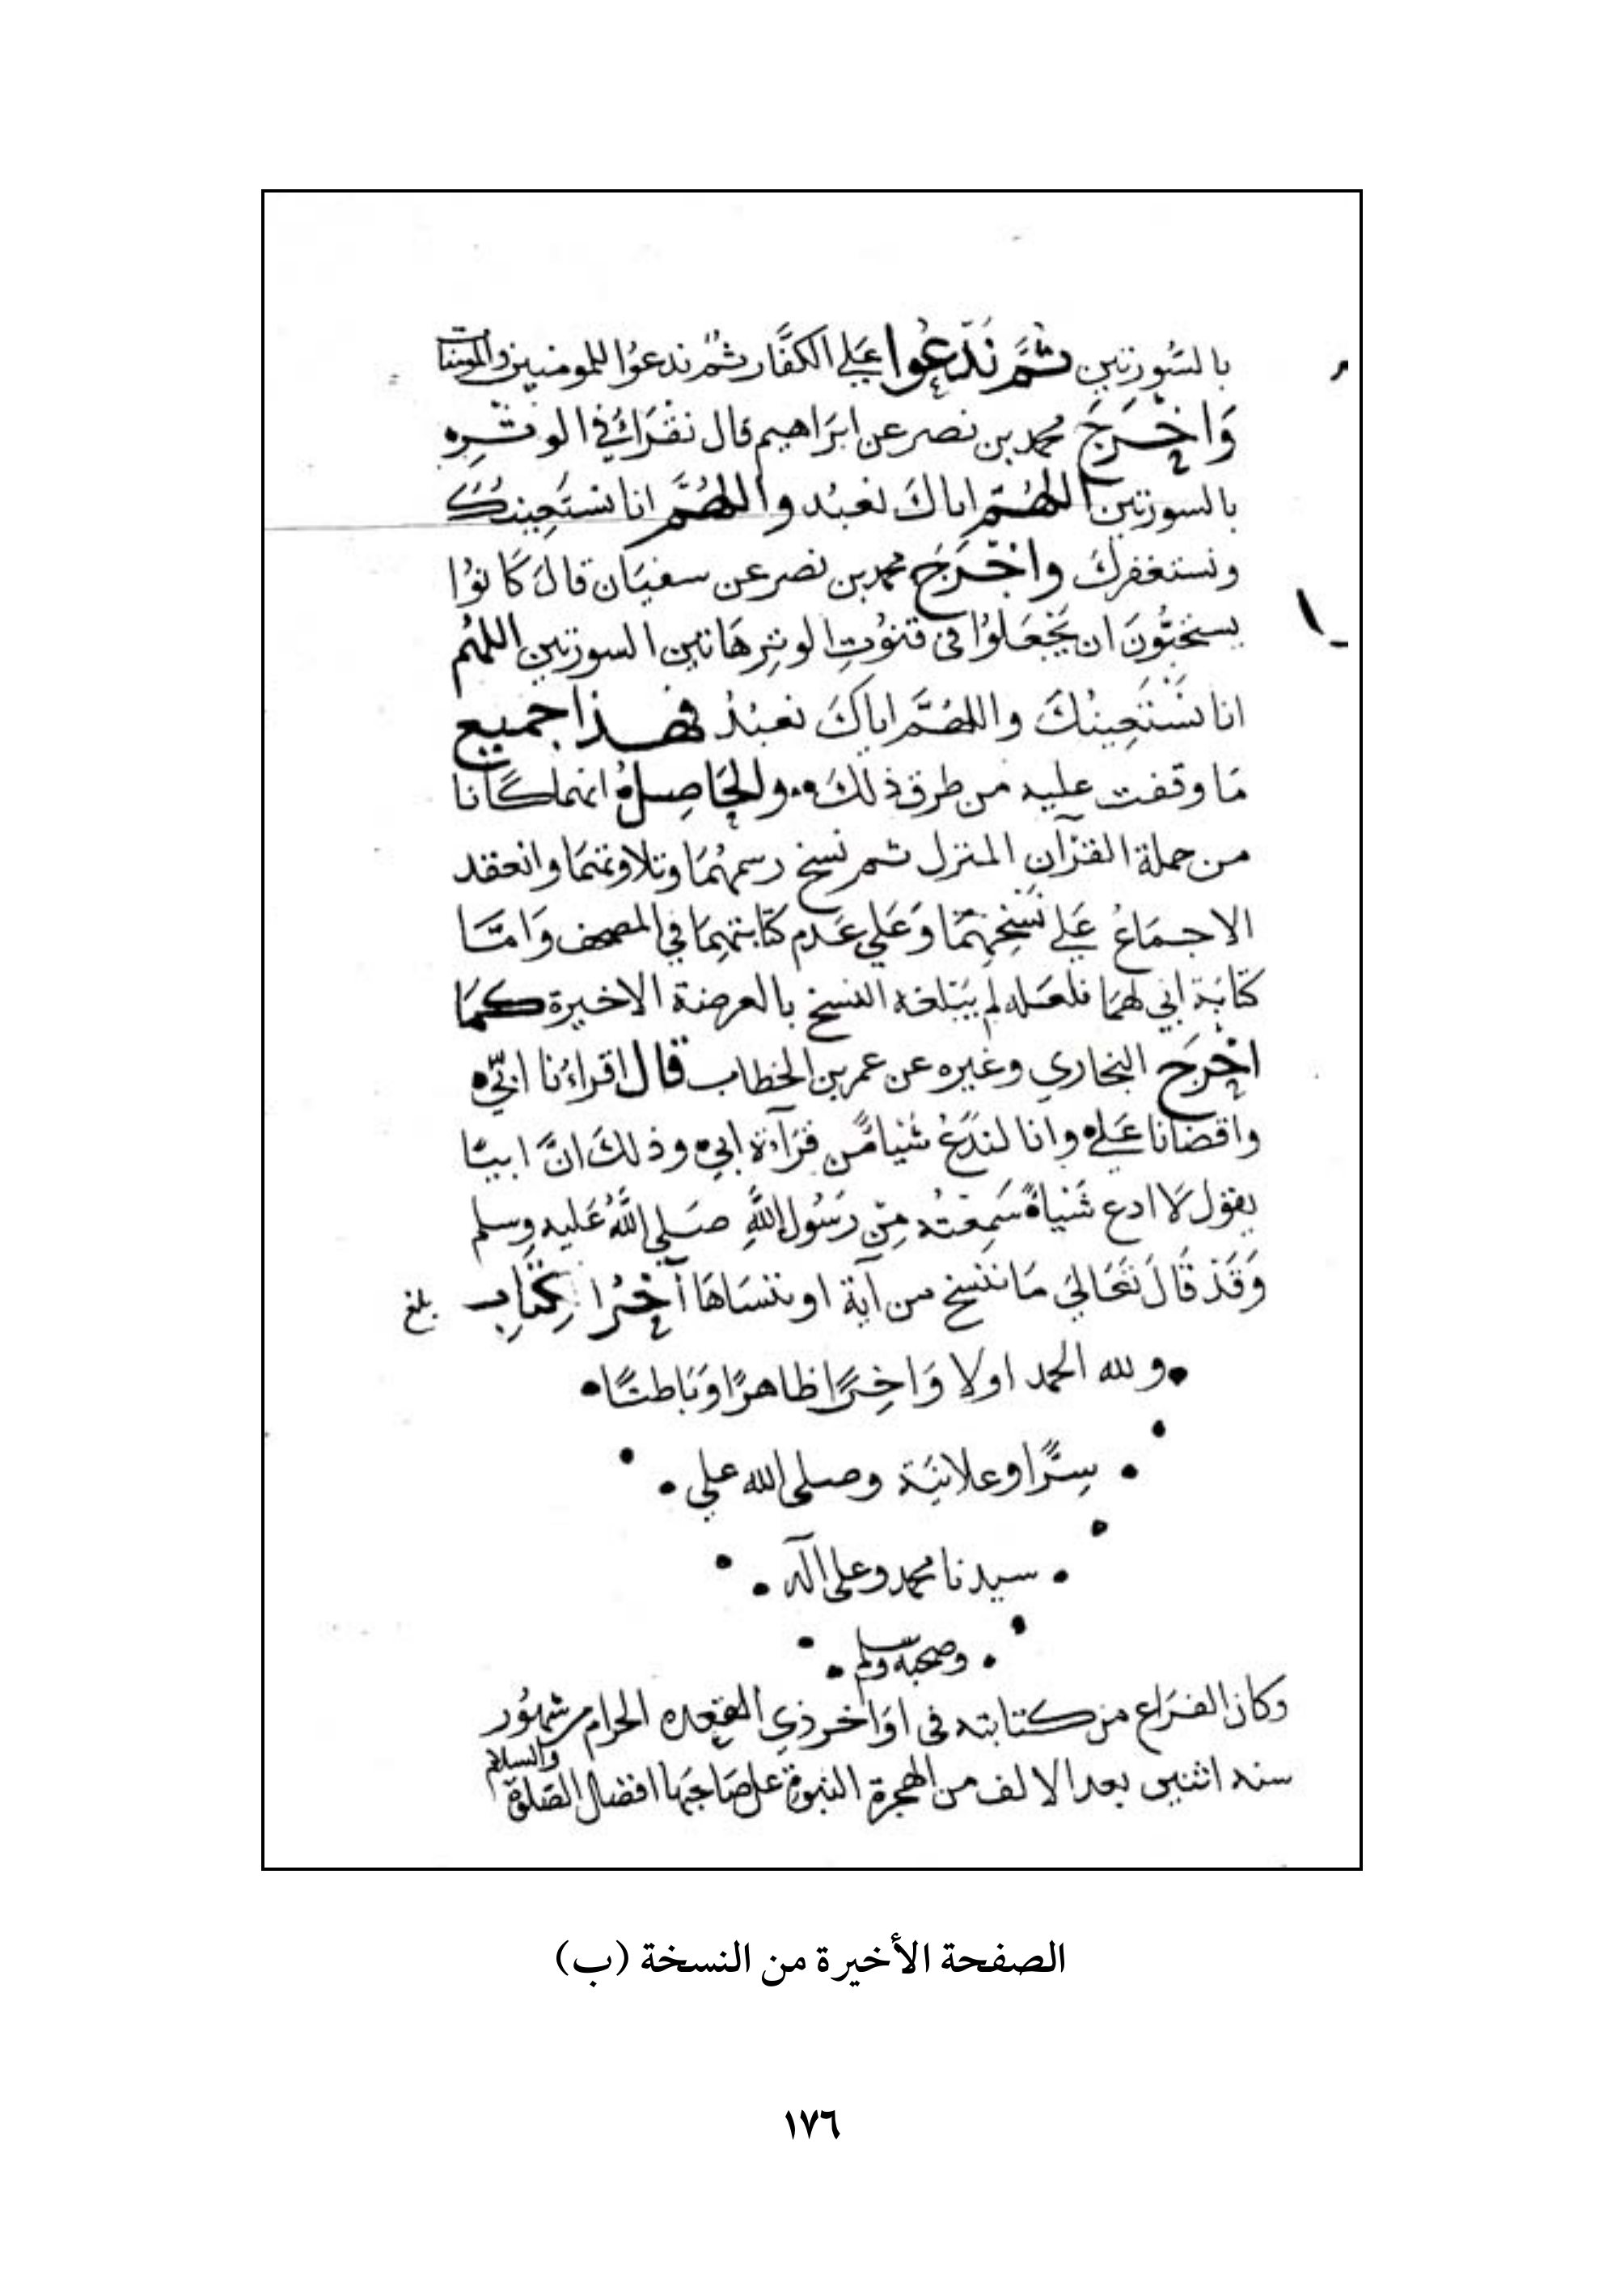 بالسُّورتين ثمَّ نَدْعُوا عَلي الكفَّار ثمّ ندعوُا للمومنين والمومنات
وَاخْرَجَ محمد بن نصر عن ابرَاهيم قال نقْرَأ في الوتْرِ
بالسورتين اللهُمّ اياكَ نعبُد واللهُمَّ انا نستَعِينك
ونستغفرك واخْرَجَ محمد بن نصر عن سفيَان قالَ كَانوُا
يستحبُّونَ ان يَجْعَلوُا في قنوُتِ الوترِ هَاتين السورتين اللهُم
انا نَسْتَعِينُكَ واللهُمَّ اياكَ نعبُدُ فهذا جميع
مَا وقفت عليه من طرق ذلكَ والحَاصِلُ انهما كَانا
من جملة القرْآن المنزل ثم نسخ رسمهُمَا وتلاوتهمَا وانعقد
الاجمَاعُ عَلي نَسْخِهِمَا وَعَلي عَدم كتَابتهِمَا في المصحف وَامَّا
كتَابَة ابي لهمَا فلعَله لم يَبْلغه النسخ بالعرضة الاخيرة كمَا
اخْرَجَ البخاري وغيره عن عمر بن الخطاب قال اقراءُنا ابَيّ
واقضانا عَلي وانا لندَعُ شيْيا مِّن قرَآءة ابي وذلكَ انَّ ابيًا
يقوُل لَا ادع شَيْياً سَمِعْتُه مِنْ رَسُول اللَّهِ صَلي اللَّهُ عَليه وسلم
وَقَدْ قَالَ تَعَالي مَا ننسخ من آية او ننسَاهَا آخْرُا لكِتَابِ بلغ
وللّه الحمد اولا وَاخِرًا ظاهرًا وَبَاطنًا
سِرًّا وعلانيَة وصلى الله علي
سيدنا محمد وعلى آله
وصحبه وسلم
وكان الفرَاغ من كتابته في اوَاخر ذي القعده الحرام من شهوُر
سنه اثنين بعد الالف من الهجرة النبوة على صَاحبهَا افضل الصَلوة والسلام
الصفحة الأخيرة من النسخة (ب)
١٧٦